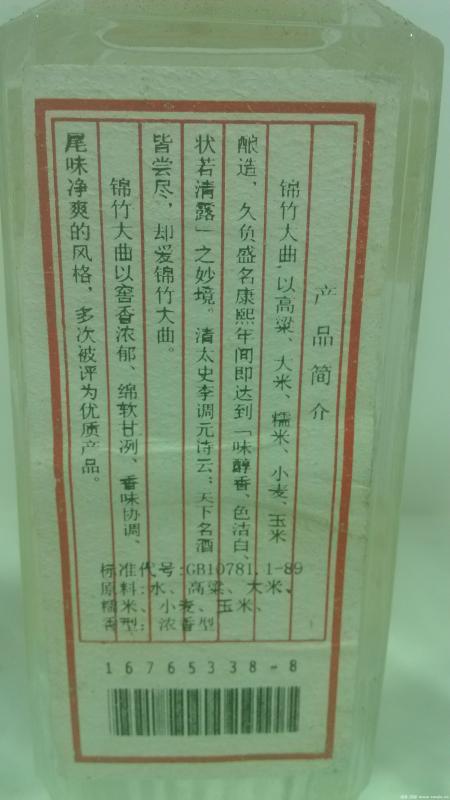 产品简介
锦竹大曲,以高粱、大米、糯米、小麦、玉米
酿造,久负盛名康熙年间即达到「味醇香、色洁白、
状若清露」之妙境。清太史李调元诗云:天下名酒
皆尝尽,却爱锦竹大曲。
锦竹大曲以窖香浓郁、绵软甘冽、香味协调、
尾味净爽的风格,多次被评为优质产品。
标准代号:GB10781.1-89
原料:水、高粱、大米、
糯米、小麦、玉米、
香型:浓香型
16765338-8